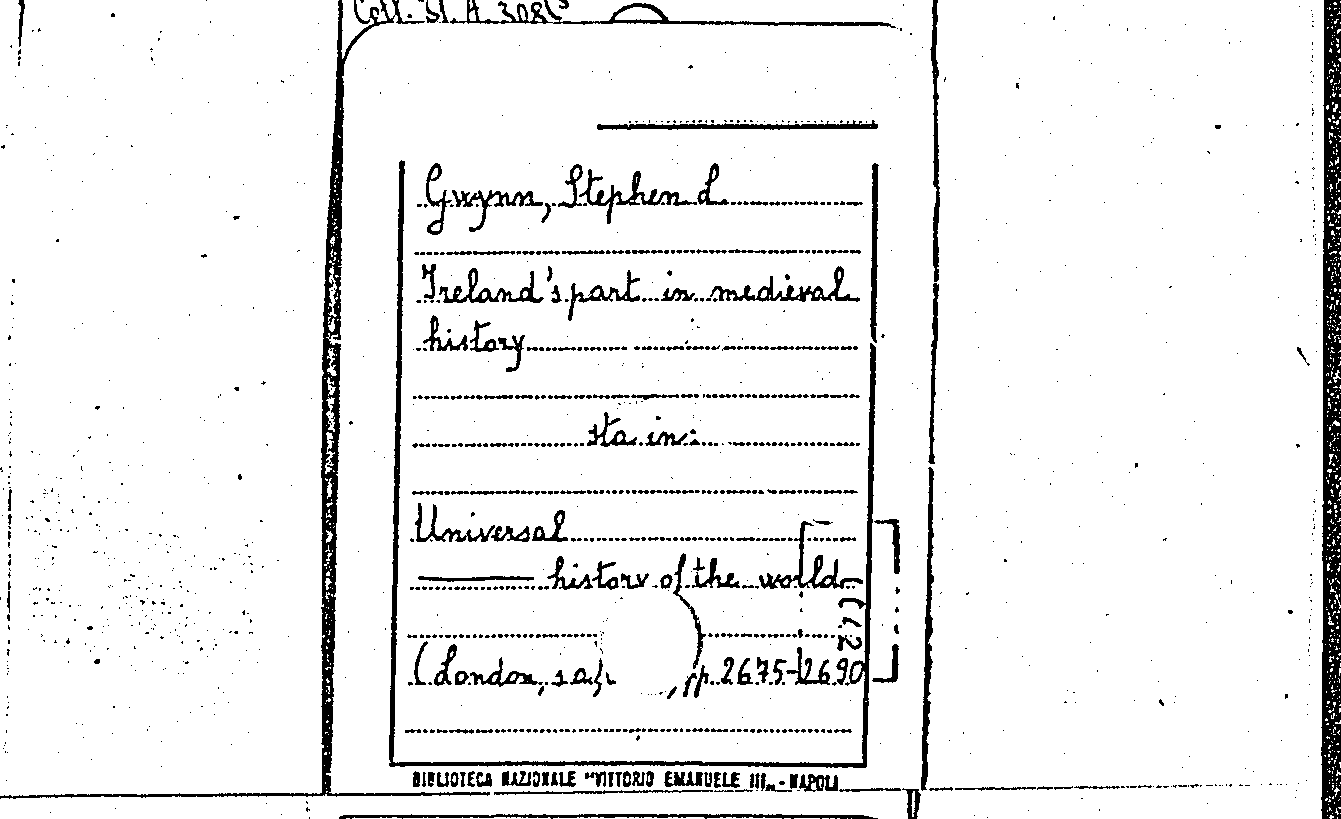 Coll. St. A. 308(3
Gwynn, Stephen L.
Ireland's part in medieval
history
sta in:
Universal
——— history of the world
(London, s.a), , pp. 2675-2690
BIBLIOTECA NAZIONALE "VITTORIO EMANUELE III„ - NAPOLI